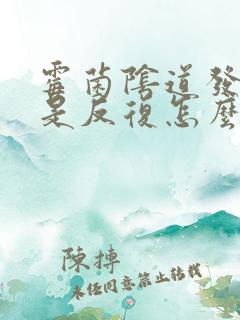 霉菌陰道發
是反復怎麼
陳摶
未經同意禁止轉載